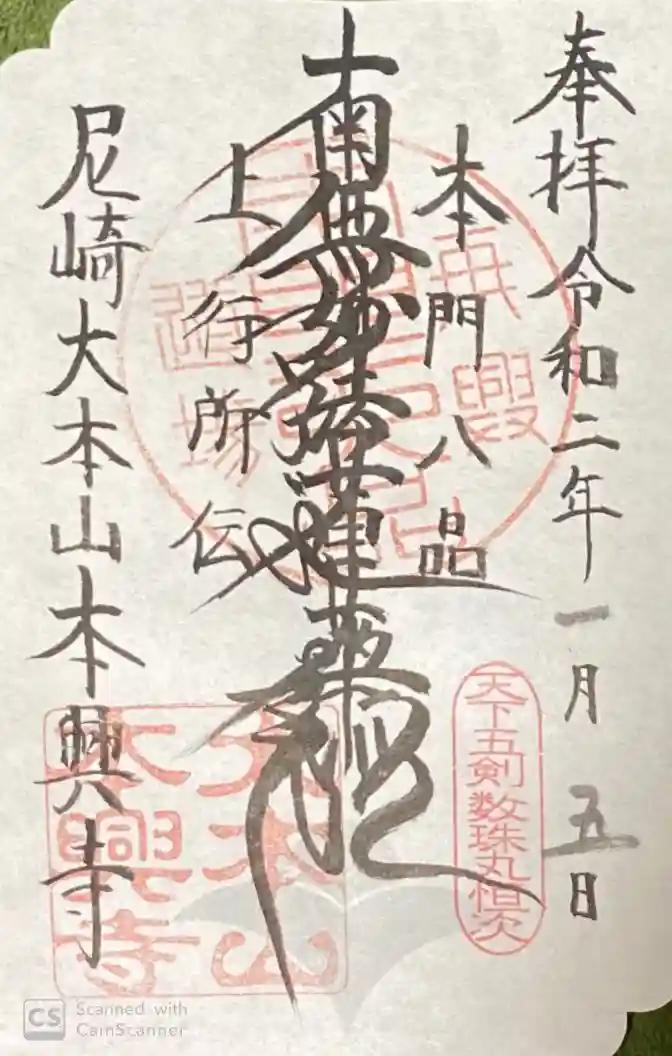 奉拝令和二年一月五日
本門八品
南無妙法蓮華経
上行所伝
尼崎大本山本興寺
天下五剣数珠丸恒次
大本山
本興寺
再興
道場
CS Scanned with
CamScanner